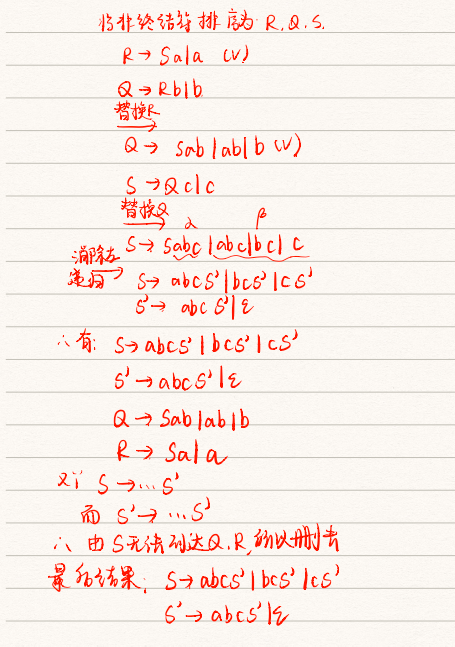 将非终结符排序为 R,Q,S.
R → Sa|a (√)
Q → Rb|b
替换R
Q → Sab|ab|b (√)
S → Qc|c
替换Q α β
S → Sabc|abc|bc|c
消除左递归 S → abcS'|bcS'|cS'
S' → abcS'|ε
∴有: S → abcS'|bcS'|cS'
S' → abcS'|ε
Q → Sab|ab|b
R → Sa|a
又∵ S → … S'
而 S' → … S'
∴ 由S无法到达Q.R,所以删去
最后结果: S → abcS'|bcS'|cS'
S' → abcS'|ε